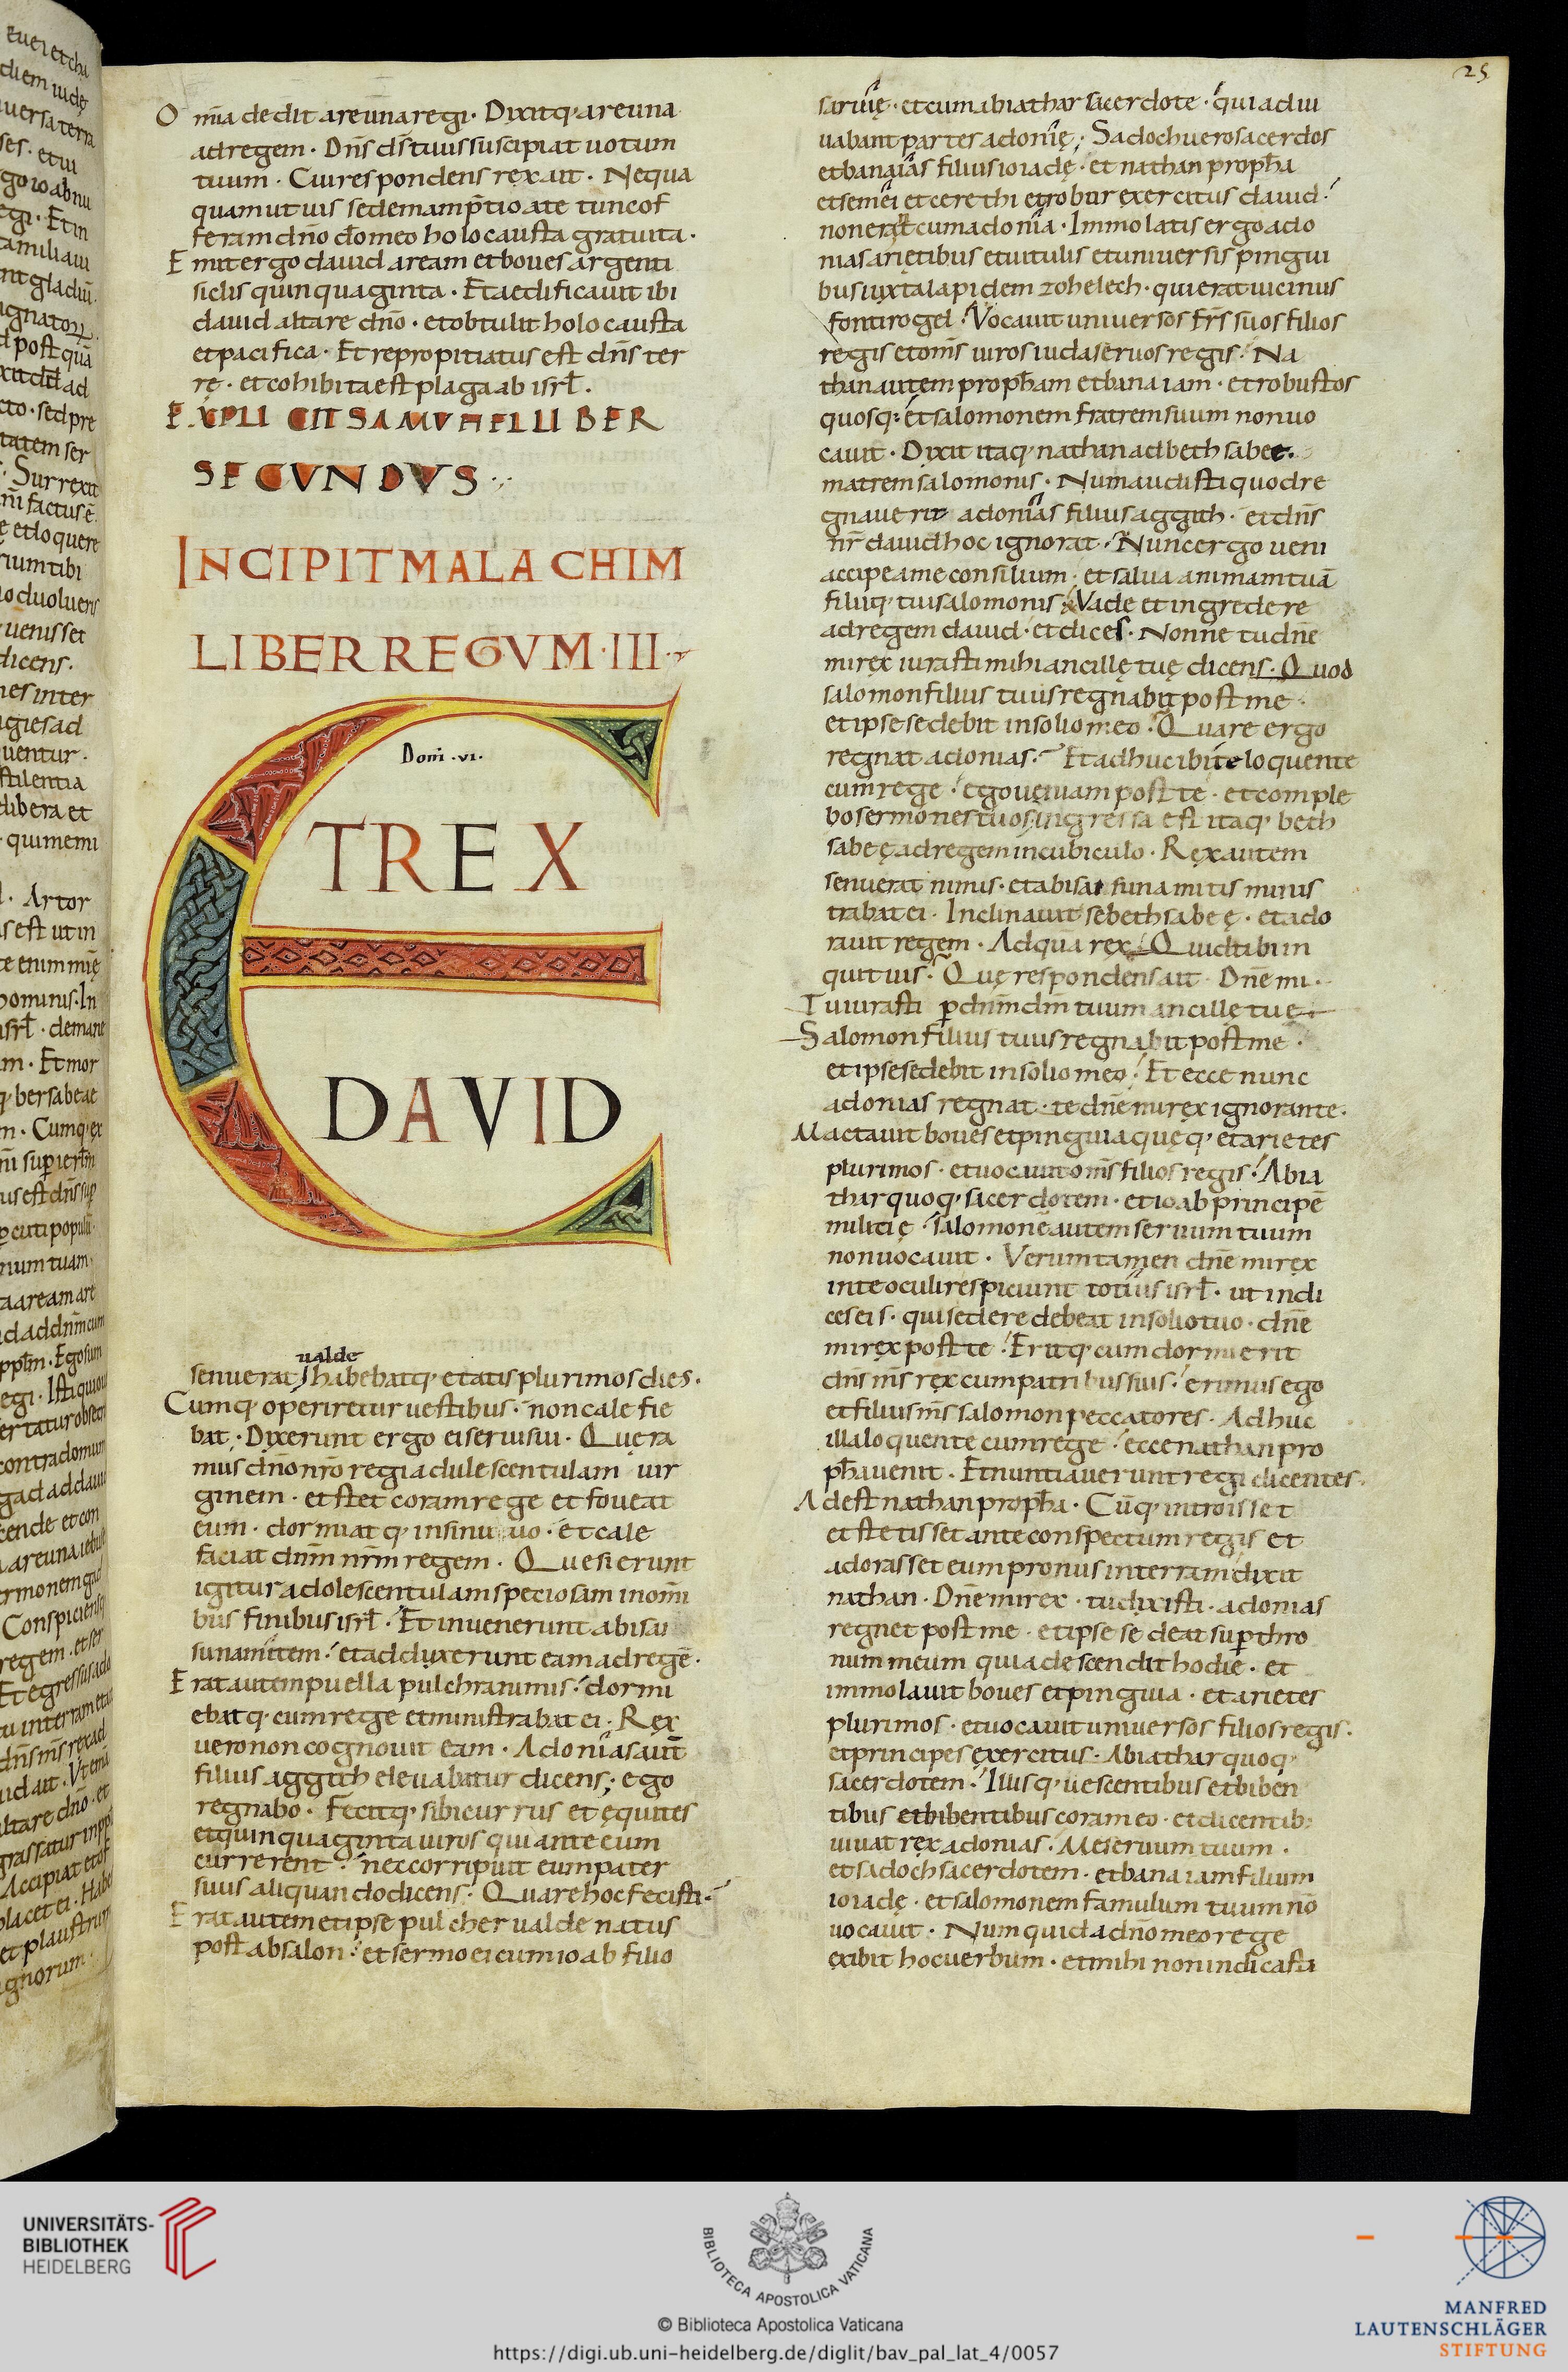 25
Om̅ia dedit areuna regi. Dixitq; areuna
ad regem. Dn̅s ds̅ tuus suscipiat uotum
tuum. Cui respondens rex ait. Nequa
quam ut uis sed emam p̅tio a te et uncof
feram dn̅o do̅ meo holocausta gratuita.
Emit ergo dauid aream et boues argenti
siclis quinquaginta. Et aedificauit ibi
dauid altare dn̅o. et obtulit holocausta
et pacifica. Et repropitiatus est dn̅s ter
rę. et cohibita est plaga ab isrl̅.
EXPLICIT SAMUHEL LIBER
SECUNDUS
INCIPIT MALACHIM
LIBER REGUM III
Dom̅ .vi.
ET REX
DAVID
ualde
senuerat habebatq; etatis plurimos dies.
Cumq; operiretur uestibus. non cale fie
bat. Dixerunt ergo ei serui sui. Quera
mus dn̅o nr̅o regi adulescentulam uir
ginem. et stet coram rege et foueat
eum. dormiatq; in sinu suo. et cale
faciat dnm̅ nrm̅ regem. Quesierunt
igitur adolescentulam speciosam in om̅i
bus finibus isrl̅. Et inuenerunt abisai
sunamitem. et adduxerunt eam ad regē.
Erat autem puella pulchra nimis. dormi
ebatq; cum rege et ministrabat ei. Rex
uero non cognouit eam. Adonias aut̅
filius aggith eleuabatur dicens; ego
regnabo. Fecitq; sibi currus et equites
et quinquaginta uiros qui ante eum
currerent. nec corripuit eum pater
suus aliquando dicens. Quare hoc fecisti.
Erat autem et ipse pulcher ualde natus
post absalon. et sermo ei cum ioab filio
saruię. et cum abiathar sacerdote. qui adiu
uabant partes adonię; Sadoch uero sacerdos
et banaias filius ioiadę. et nathan proph̅a
et semei et cerethi et robur exercitus dauid.
non erat cum adonia. Immolatis ergo ado
nias arietibus et uitulis et uniuersis pingui
bus iuxta lapidem zohelech. qui erat uicinus
fonti rogel. Vocauit uniuersos frs̅ suos filios
regis et om̅s uiros iuda seruos regis. Na
than autem proph̅am et banaiam. et robustos
quosq; et salomonem fratrem suum non uo
cauit. Dixit itaq; nathan ad bethsabee.
matrem salomonis. Num audisti quod re
gnauerit adonias filius aggith. et dn̅s
nr̅ dauid hoc ignorat. Nunc ergo ueni
accipe a me consilium. et salua animam tuā
filiiq; tui salomonis. Vade et ingredere
ad regem dauid. et dices. Nonne tu dn̅e
mi rex iurasti mihi ancillę tuę dicens. Quod
salomon filius tuus regnabit post me.
et ipse sedebit in solio meo. Quare ergo
regnat adonias. Et adhuc ibi te loquente
cum rege. ego ueniam post te. et comple
bo sermones tuos ingressa est itaq; beth
sabeę ad regem in cubiculo. Rex autem
senuerat nimis. et abisai sunamitis minis
trabat ei. Inclinauit se bethsabeę. et ado
rauit regem. Ad quā rex. Quid tibi in
quit uis. Quę respondens ait. Dn̅e mi.
Tu iurasti p̱ dn̅m dm̅ tuum ancillę tuę.
Salomon filius tuus regnabit post me.
et ipse sedebit in solio meo. Et ecce nunc
adonias regnat. te dn̅e mi rex ignorante.
Mactauit boues et pinguia quęq; et arietes
plurimos. et uocauit om̅s filios regis. Abia
thar quoq; sacerdotem. et ioab principē
militię. salomonē autem seruum tuum
non uocauit. Verumtamen dn̅e mi rex
in te oculi respiciunt totius isrl̅. ut indi
ces eis. qui sedere debeat in solio tuo. dn̅e
mi rex post te. Eritq; cum dormierit
dn̅s ms̅ rex cum patribus suis. erimus ego
et filius ms̅ salomon peccatores. Adhuc
illa loquente cum rege. ecce nathan pro
ph̅a uenit. Et nuntiauerunt regi dicentes.
Adest nathan proph̅a. Cūq; introisset
et stetisset ante conspectum regis et
adorasset eum pronus in terram dixit
nathan. Dn̅e mi rex. tu dixisti. adonias
regnet post me. et ipse sedeat sup̱ thro
num meum quia descendit hodie. et
immolauit boues et pinguia. et arietes
plurimos. et uocauit uniuersos filios regis.
et principes exercitus. Abiathar quoq;
sacerdotem. Illisq; uescentibus et biben
tibus et bibentibus coram eo. et dicentib;
uiuat rex adonias. Me seruum tuum.
et sadoch sacerdotem. et banaiam filium
ioiadę. et salomonem famulum tuum nō
uocauit. Numquid a dn̅o meo rege
exibit hoc uerbum. et mihi non indicasti
UNIVERSITÄTS-
BIBLIOTHEK
HEIDELBERG
BIBLIOTECA APOSTOLICA VATICANA
© Biblioteca Apostolica Vaticana
https://digi.ub.uni-heidelberg.de/diglit/bav_pal_lat_4/0057
MANFRED
LAUTENSCHLÄGER
STIFTUNG